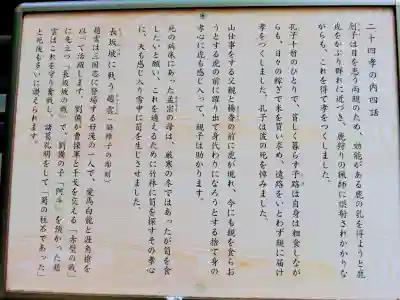 二十四孝の内四話
剡子は目を患う両親のため、効能がある鹿の乳を得ようと鹿
皮をかぶり群れに近づき、鹿狩りの猟師に誤射されかかりな
がらも、これを得て孝をつくしました。
孔子十哲のひとりで、貧しく暮らす子路は自身は粗食しなが
らも、日々の稼ぎで米を買い求め、遠路をいとわず親に届け
孝をつくしました。孔子は彼の死を悼みました。
山仕事をする父親と楊香の前に虎が現れ、今にも親を食らお
うとする虎の前に躍り出て身代わりになろうとする捨て身の
孝心に虎も感じ入って、親子は助かります。
死の病床にあった孟宗の母は、厳寒の冬ではあったが筍を食
したいと願い、これを適えるために竹林に筍を探すその孝心
に、天も感じ入り雪中に筍を生じさせました。
長坂坡に戦う趙雲(脇障子の彫刻)
趙雲は三国志に登場する好漢の一人で、愛馬白龍と涯角槍を
以って活躍します。劉備が曹操軍と干戈を交える「赤壁の戦」
に先立つ「長坂坡の戦」で、劉備の子「阿斗」を預かった趙
雲はこれを守り奮戦し、諸葛孔明をして「蜀の柱石であった」
と死後も多いに讃えられます。